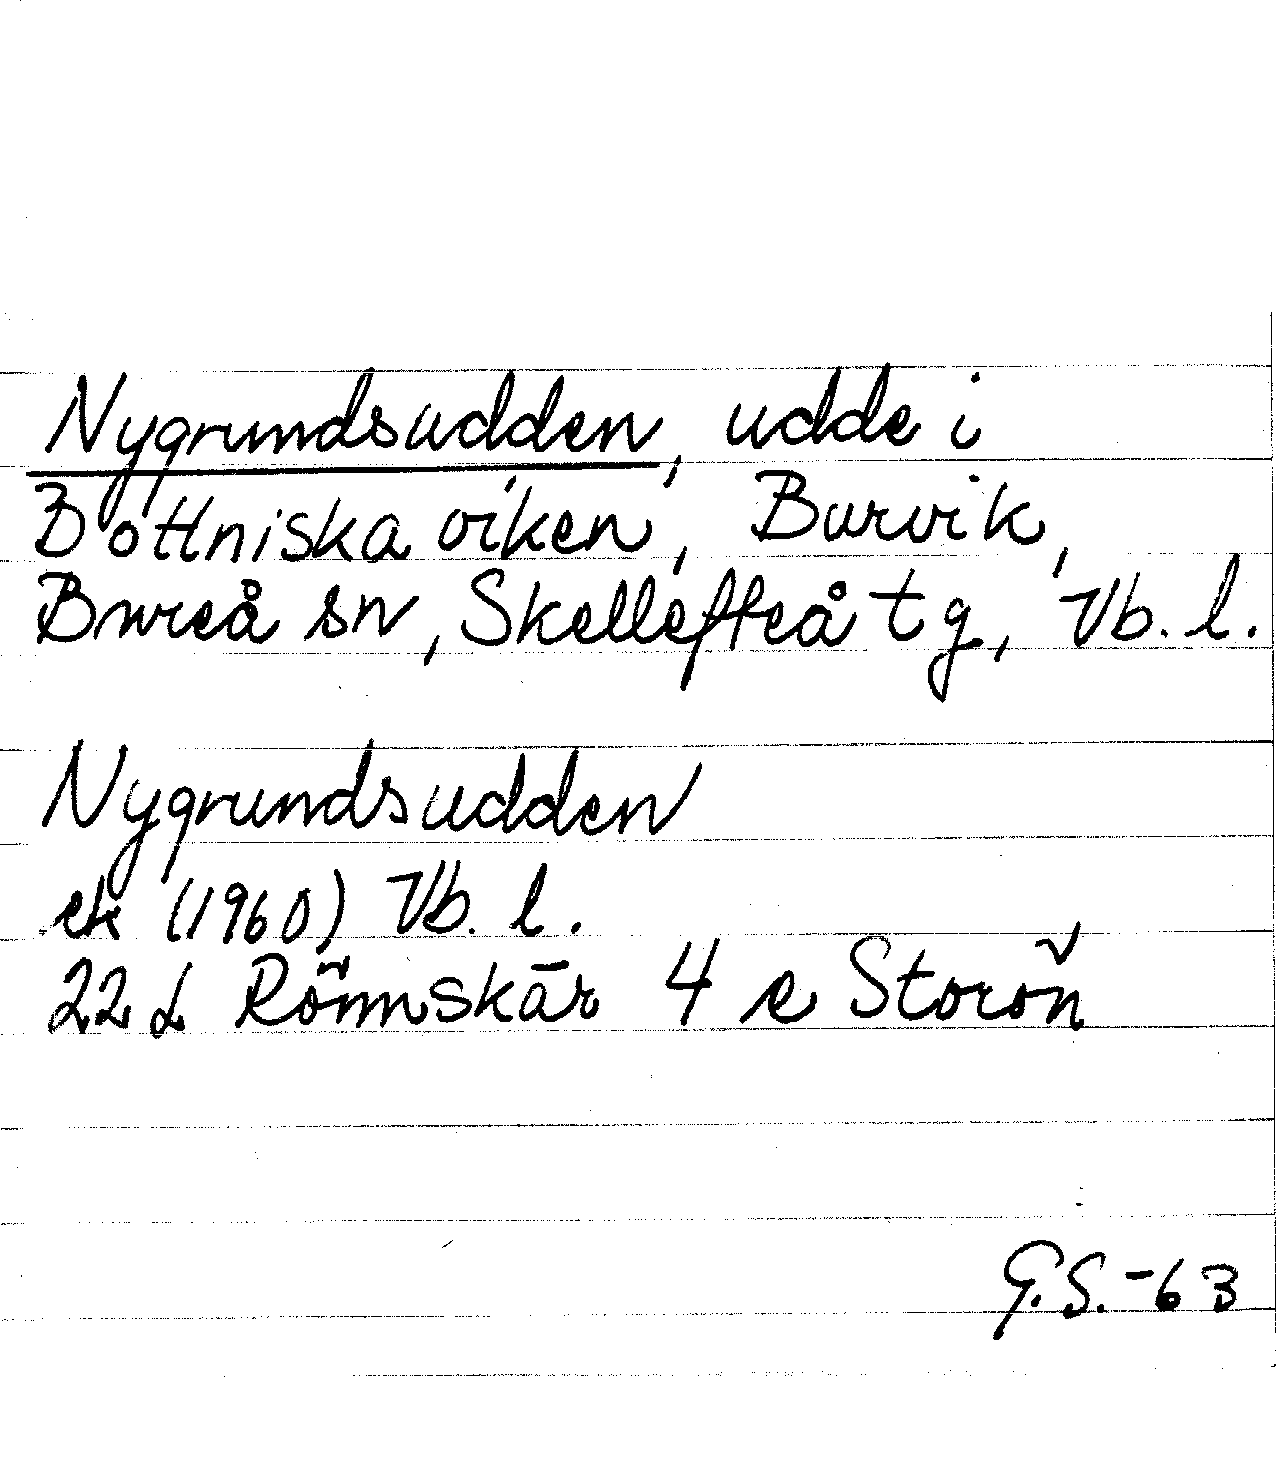 Nygrundsudden, udde i
Bottniska viken, Burvik,
Bureå sn, Skellefteå tg, Vb. l.
Nygrundsudden
ek (1960) Vb. l.
22 L Rönnskär 4 e Storön
G.S. -63